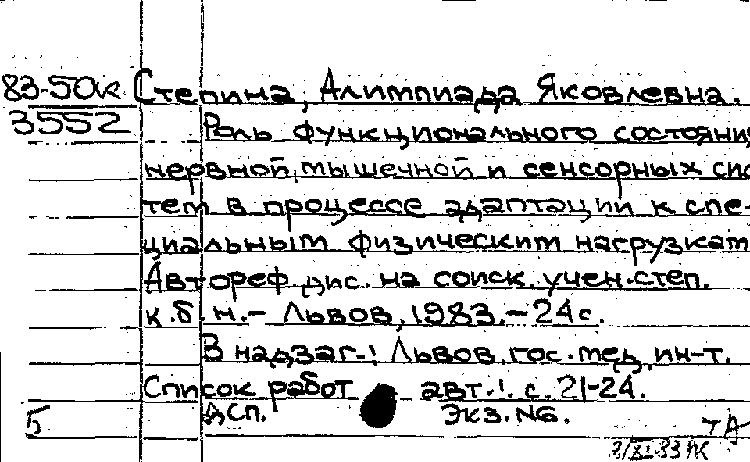 83-50к Степина, Алимпиада Яковлевна.
3552 Роль функционального состояния
нервной, мышечной и сенсорных сис
тем в процессе адаптации к спе-
циальным физическим нагрузкам
Автореф. дис. на соиск. учен. степ.
к. б. н. - Львов, 1983. - 24 с.
В надзаг.: Львов. гос. мед. ин-т.
Список работ авт.: с. 21-24.
ДСП. Экз. №6.
5